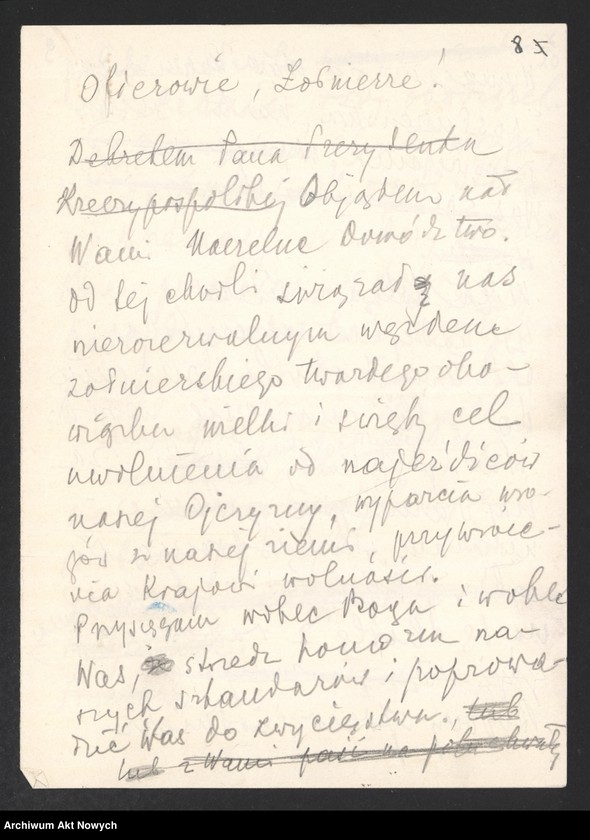 87
Oficerowie, Żołnierze!
Dekretem Pana Prezydenta
Rzeczypospolitej Objąłem nad
Wami Naczelne Dowództwo.
Od tej chwili związał nas
nierozerwalnym węzłem
żołnierskiego twardego obo-
wiązku wielki i święty cel
uwolnienia od najeźdźców
naszej Ojczyzny, wyparcia wro-
gów z naszej ziemi, przywróce-
nia Krajowi wolności.
Przysięgam wobec Boga i wobec
Was, strzedz honoru na-
szych sztandarów i poprowa-
dzić Was do zwycięstwa., lub
lub z Wami paść na polu chwały
Archiwum Akt Nowych